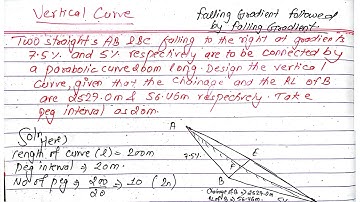 Vertical Curve
falling Gradient followed
by falling Gradient.
Two straight's AB & Bc falling to the right at gradients
7.5% and 5% respectively are to be connected by
a parabolic curve 200m long. Design the vertical
curve, given that the Chainage and the RL of B
are 2529.0m & 56.46m respectively. Take
peg interval as 20m.
Soln
Here)
length of curve (l) = 200m
Peg interval → 20m.
No of peg → 200/20 → 10 (2n)
A
7.5%
E
F
B
Chainage of B → 2529.0m
RL of B → 56.46m.